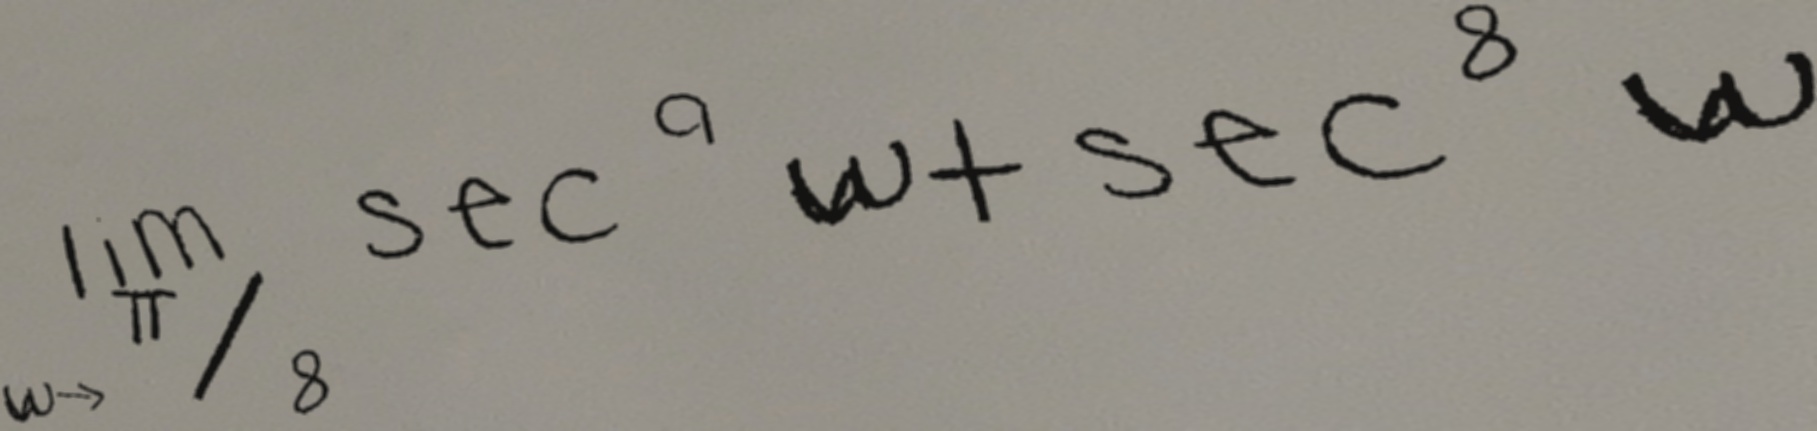 lim w→π/8 sec^9 w + sec^8 w